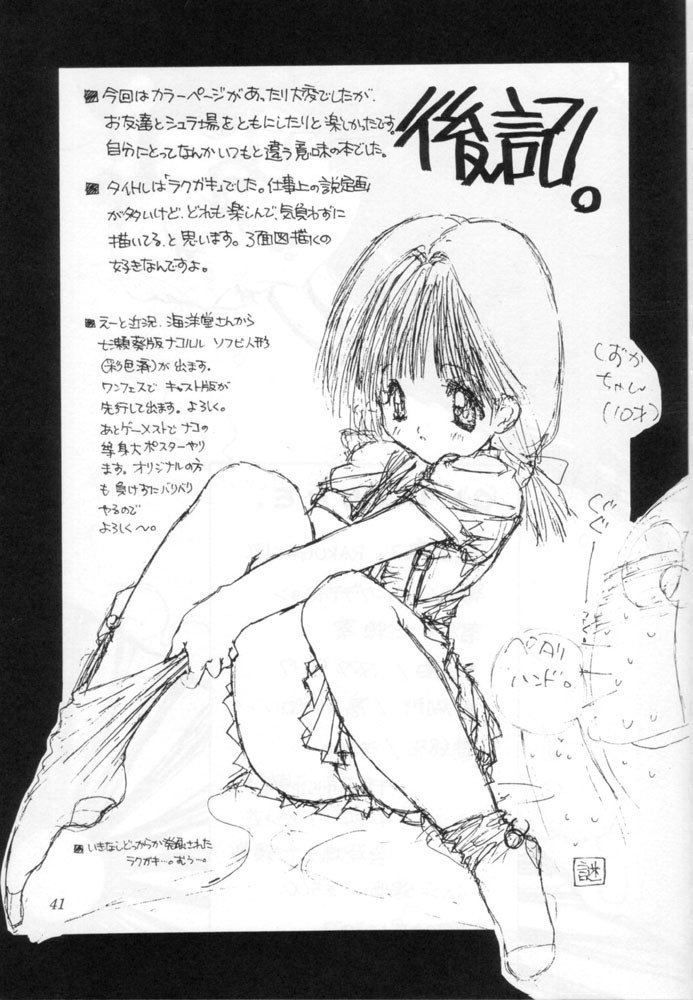 後記。
■今回はカラーページがあったり大変でしたが、
お友達とシュラ場をともにしたりと楽しかったです。
自分にとってなんかいつもと違う意味の本でした。
■タイトルは「ラクガキ」でした。仕事上の設定画
が多いけど、どれも楽しんで、気負わずに
描いてる、と思います。3面図描くの
好きなんですよ。
■えーと近況、海洋堂さんから
七瀬葵版ナコルル ソフビ人形
(彩色済)が出ます。
ワンフェスで キャスト版が
先行して出ます。よろしく。
あとゲーメストでナコの
等身大ポスターやり
ます。オリジナルの方
も負けずにバリバリ
やるので
よろしく〜。
しおか
ちゃん
(10才)
ぐぐ
ペタリ
ハンド。
■いきなしどっからか発掘された
ラクガキ…。むう…。
謎
41